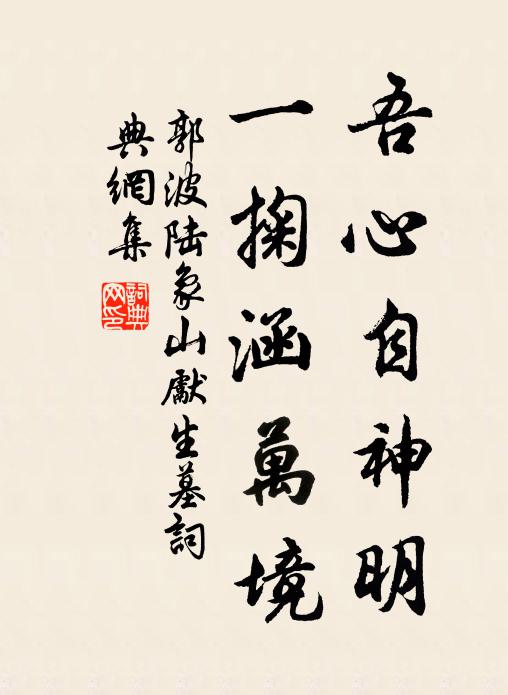 吾心自神明
一掬涵萬境
郭波陆象山獻生墓詞
典網集
詞典
网印